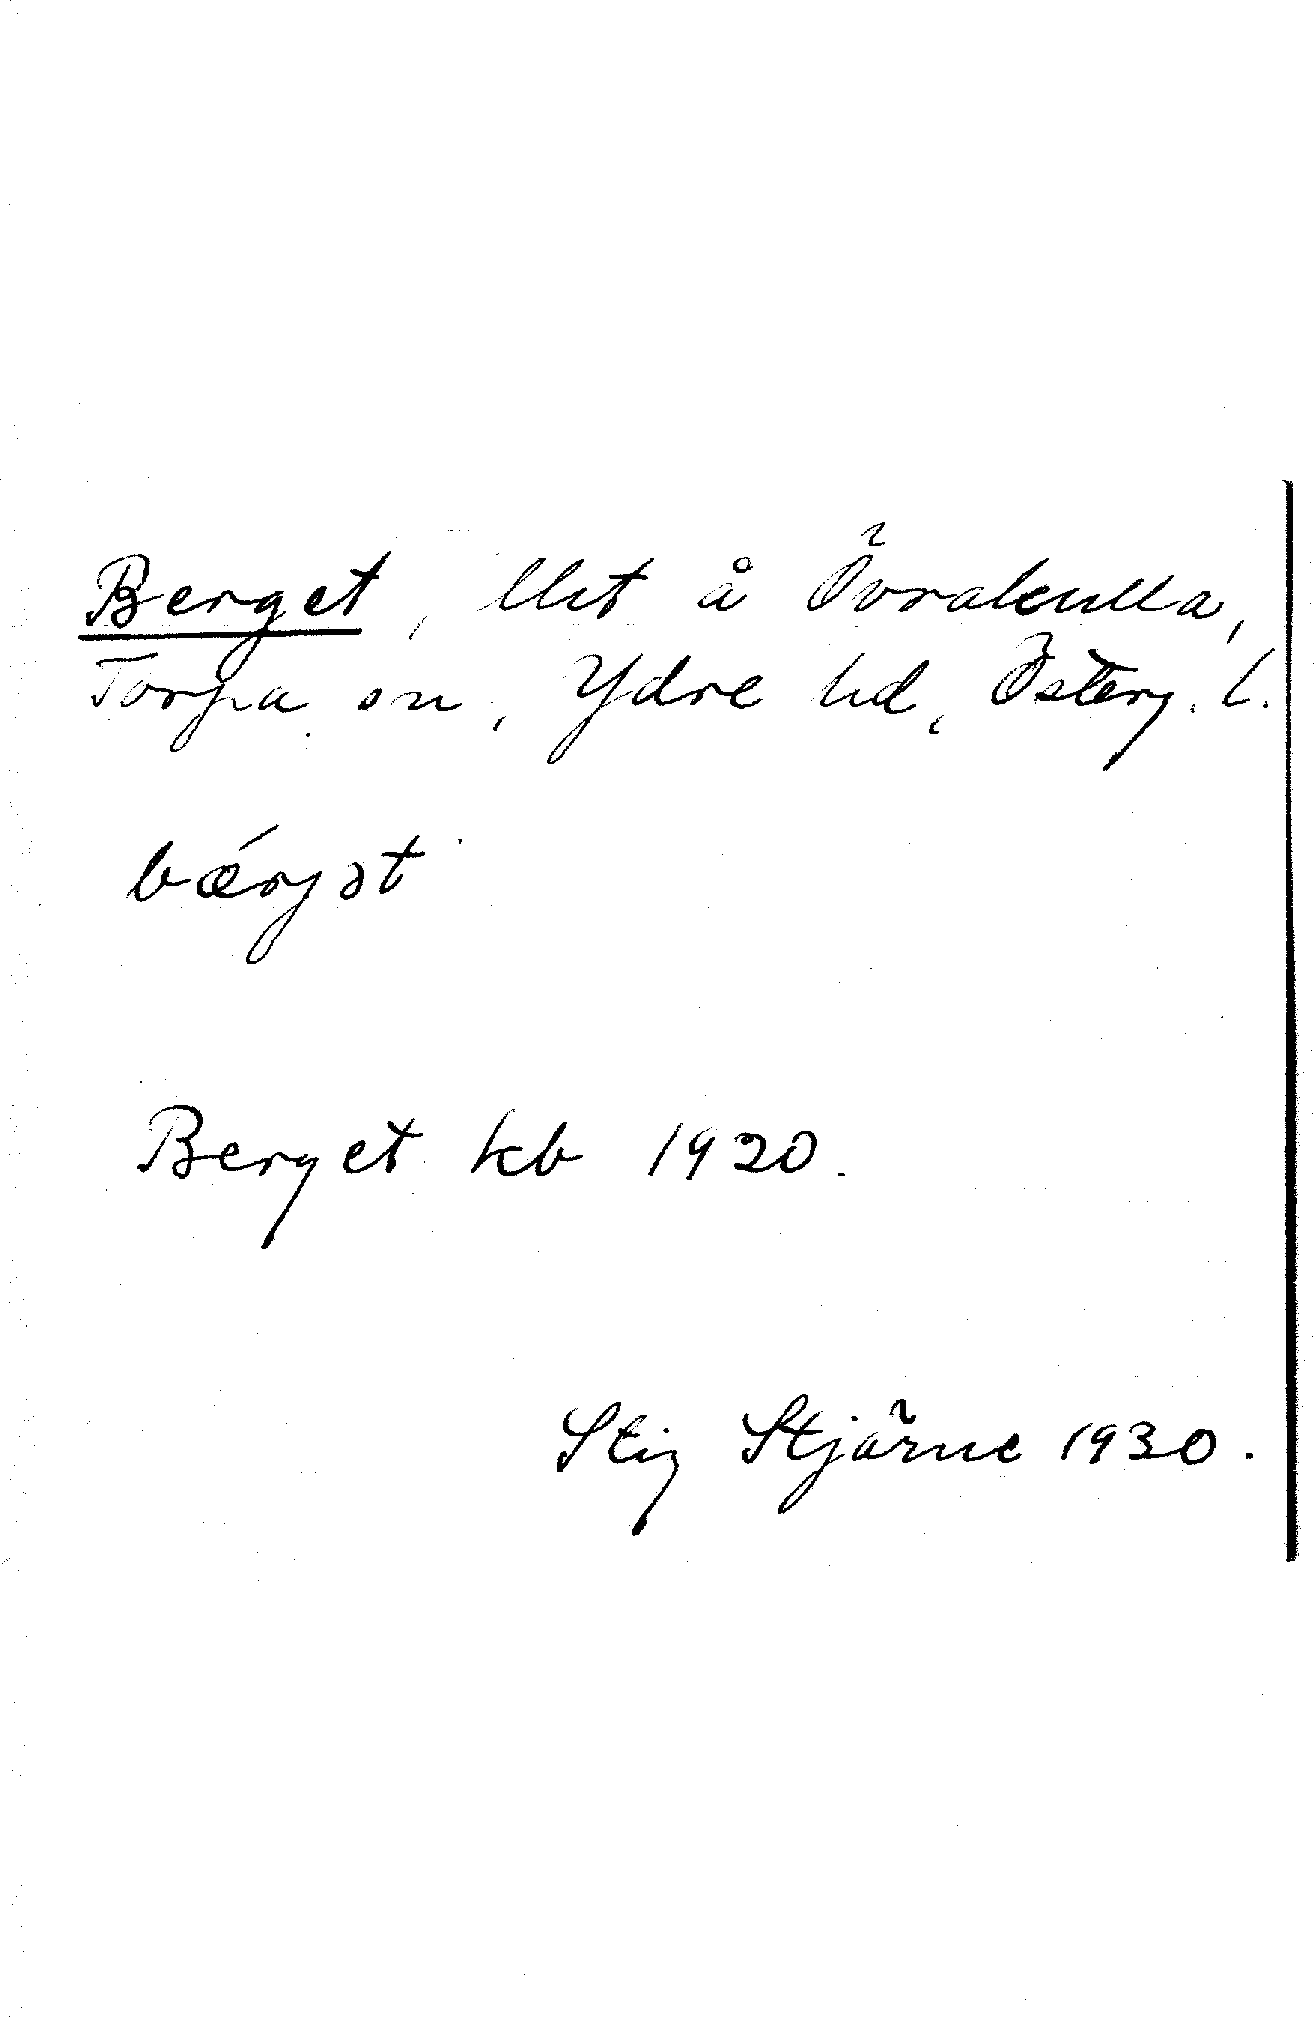 Berget, llht å Övrakulla,
Torpa sn, Ydre hd, Österg. l.
bǽrjət
Berget kb 1920.
Stig Stjärne 1930.